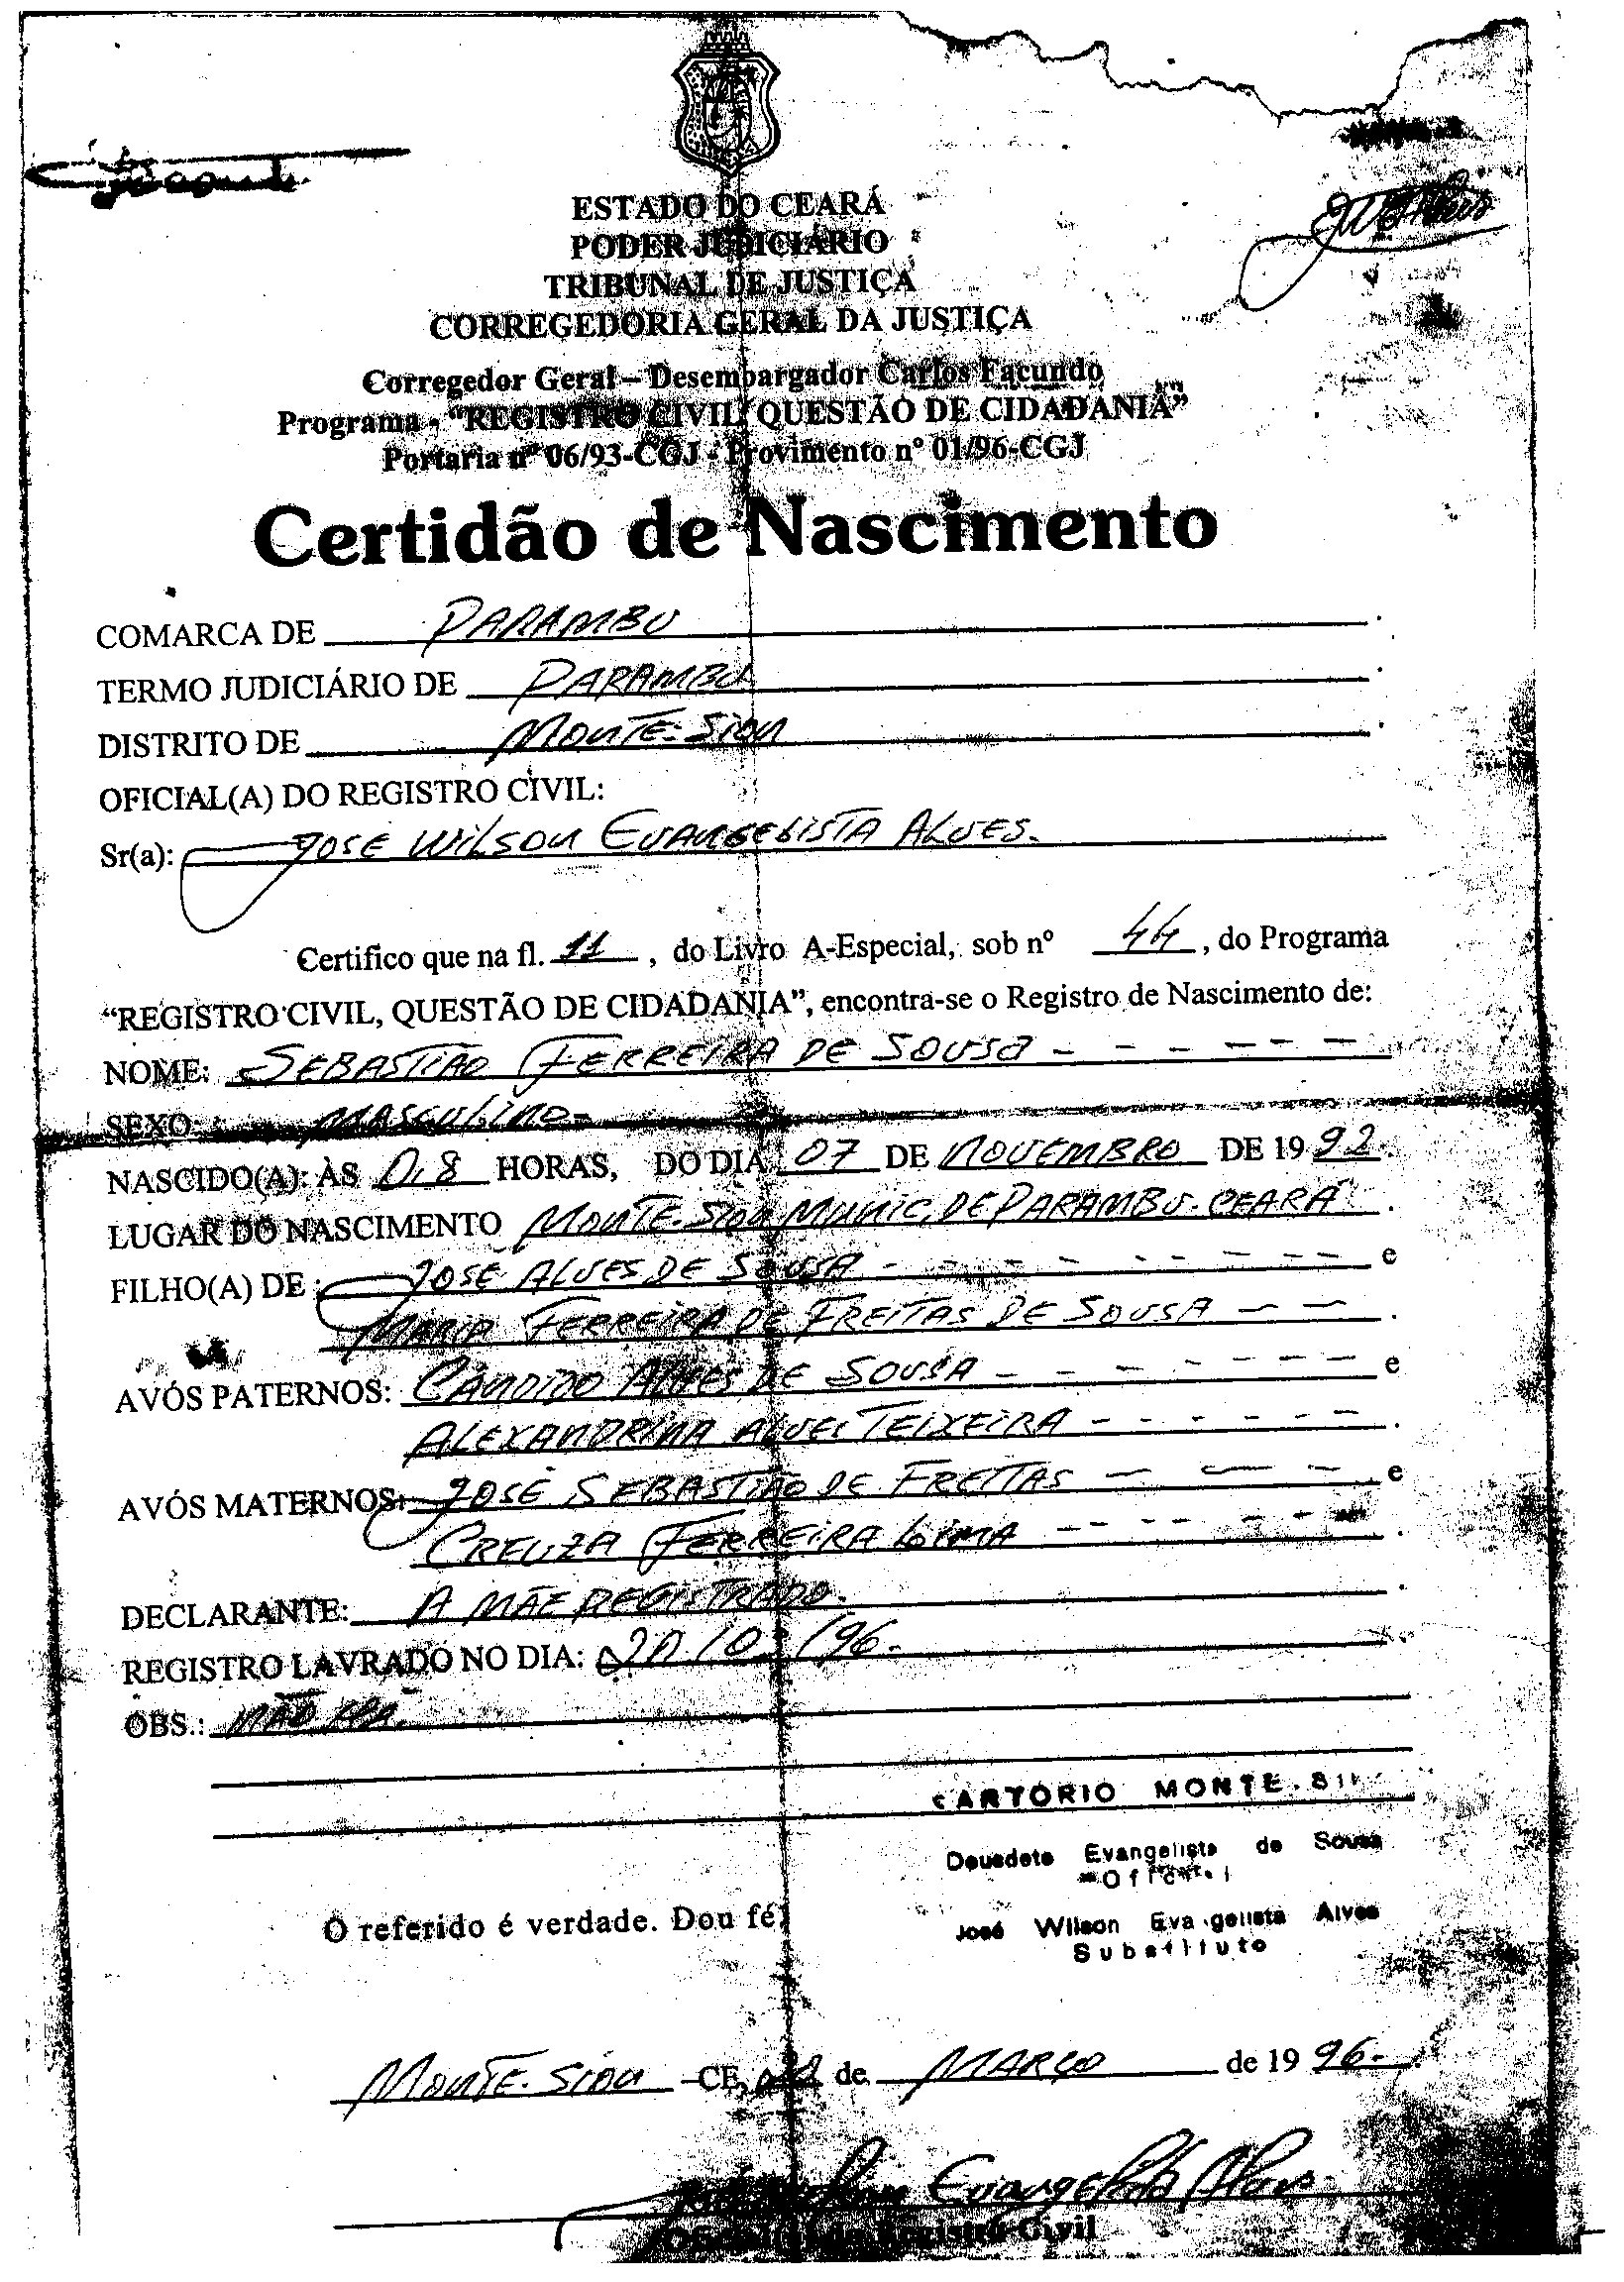 ESTADO DO CEARÁ
PODER JUDICIÁRIO
TRIBUNAL DE JUSTIÇA
CORREGEDORIA GERAL DA JUSTIÇA
Corregedor Geral – Desembargador Carlos Facundo
Programa - "REGISTRO CIVIL, QUESTÃO DE CIDADANIA"
Portaria nº 06/93-CGJ - Provimento nº 01/96-CGJ
Certidão de Nascimento
COMARCA DE PARAMBU.
TERMO JUDICIÁRIO DE PARAMBU.
DISTRITO DE MONTE-SION.
OFICIAL(A) DO REGISTRO CIVIL:
Sr(a): JOSE WILSON EVANGELISTA ALVES.
Certifico que na fl. 11, do Livro A-Especial, sob nº 44, do Programa
"REGISTRO CIVIL, QUESTÃO DE CIDADANIA", encontra-se o Registro de Nascimento de:
NOME: SEBASTIÃO FERREIRA DE SOUSA - - - - - -
SEXO: MASCULINO-
NASCIDO(A): ÀS 0,8 HORAS, DO DIA 07 DE NOVEMBRO DE 1992.
LUGAR DO NASCIMENTO MONTE-SION MUNIC, DE PARAMBU-CEARÁ.
FILHO(A) DE: JOSE ALVES DE SOUSA - - - - - - - - e
MARIA FERREIRA DE FREITAS DE SOUSA - - .
AVÓS PATERNOS: CÂNDIDO ALVES DE SOUSA - - - - - - - e
ALEXANDRINA ALVES TEIXEIRA - - - - - - .
AVÓS MATERNOS: JOSÉ SEBASTIÃO DE FREITAS - - - - e
CREUZA FERREIRA LIMA - - - - - - .
DECLARANTE: A MÃE REGISTRADO.
REGISTRO LAVRADO NO DIA: /96-
OBS.: NÃO
CARTÓRIO MONTE
Deusdete Evangelista de Sousa
Oficial
José Wilson Evangelista Alves
Substituto
O referido é verdade. Dou fé.
MONTE-SION -CE, de MARÇO de 1996-
Evangelista Alves
Registro Civil